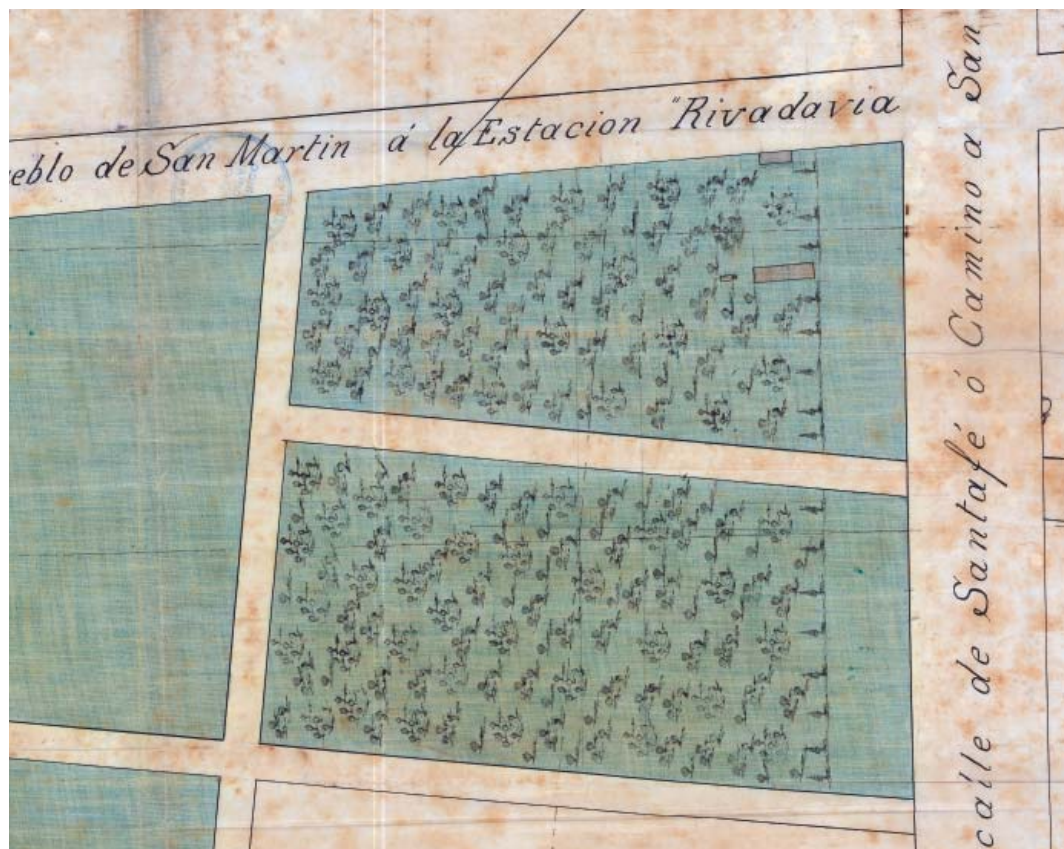 eblo de San Martin á la Estacion "Rivadavia
calle de Santafé ó Camino a San